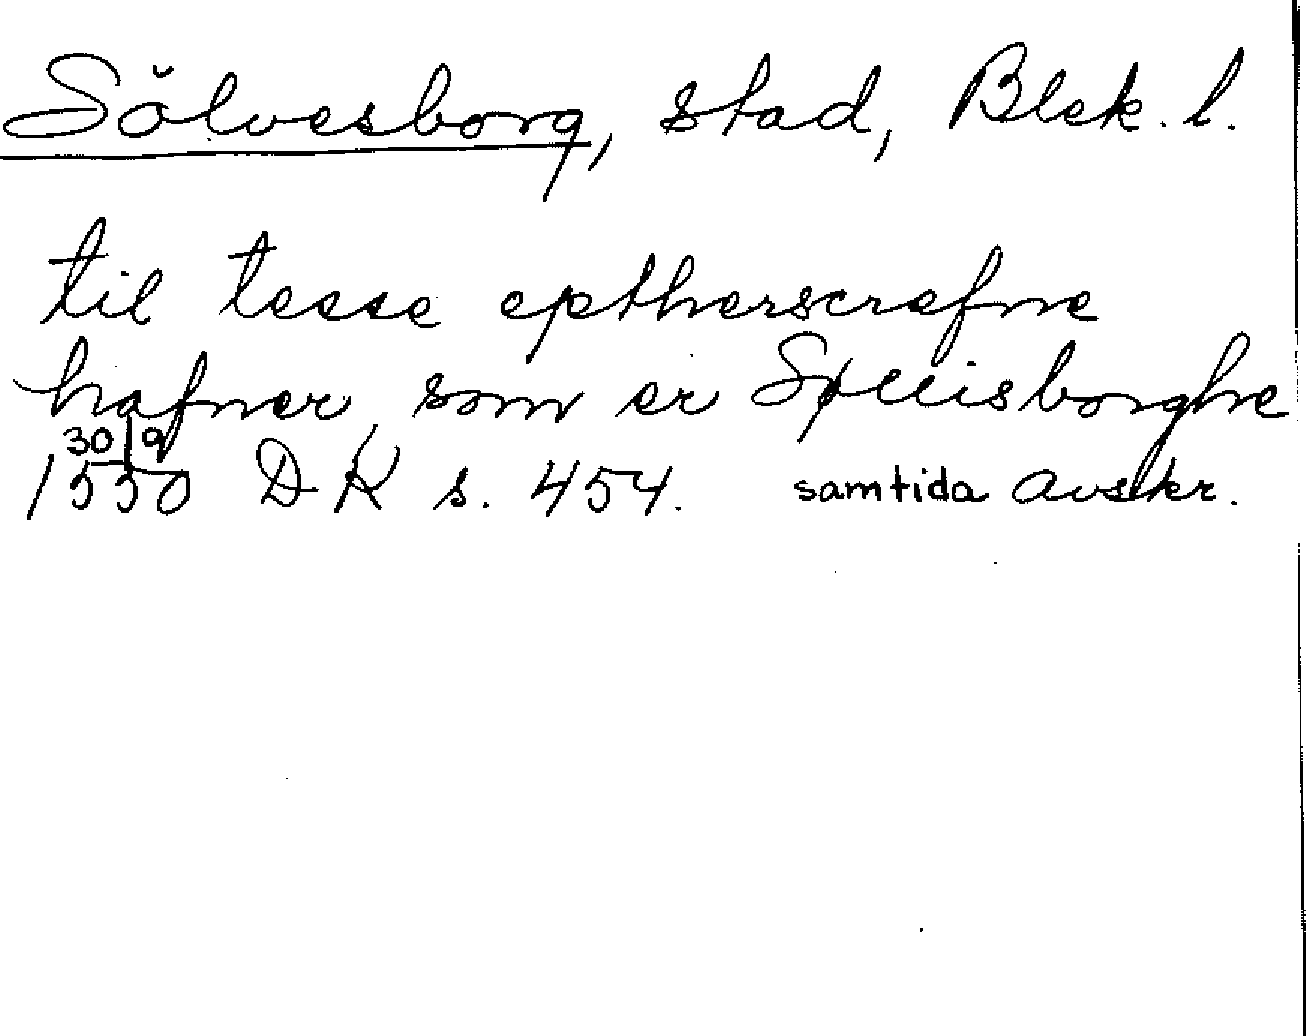 Sölvesborg, stad, Blek. l.
til tesse eptherscrefne
hafner som er Søluisborghe
30/9
1550 DK s. 454. samtida avskr.